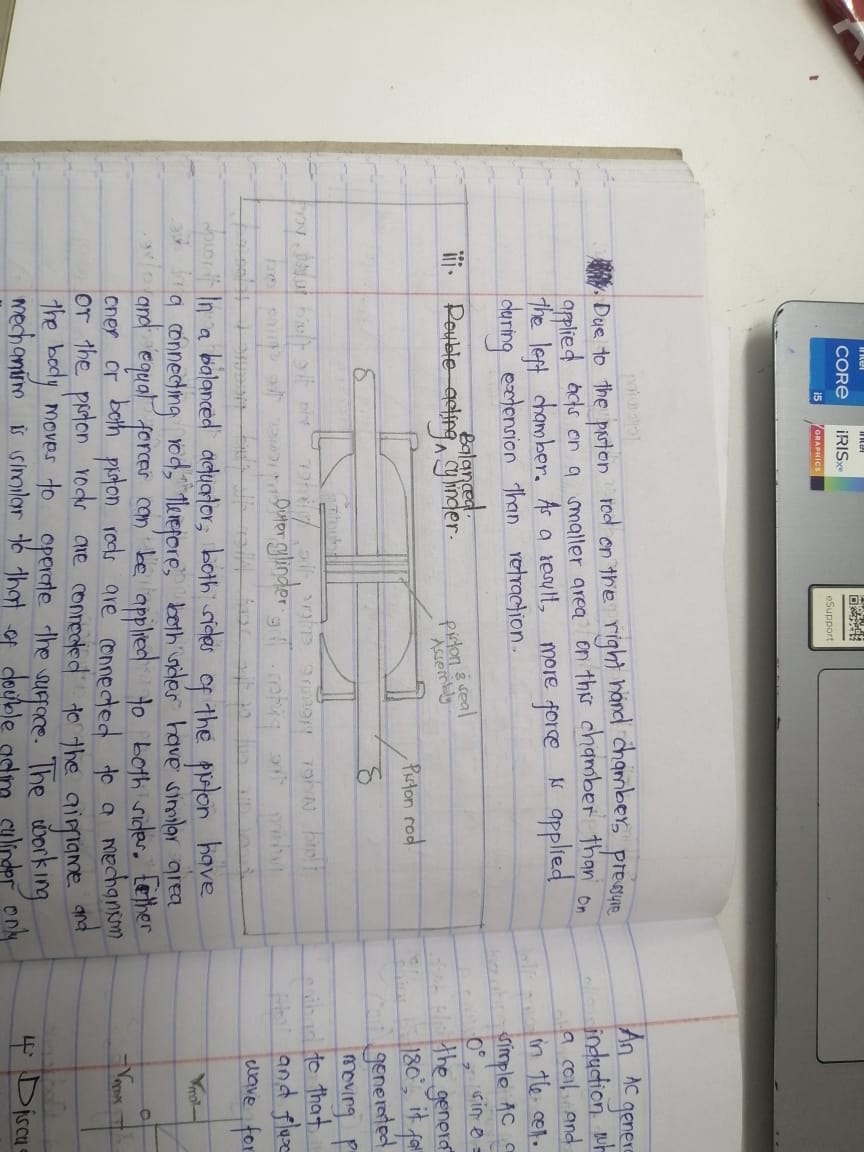 Due to the piston rod on the right hand chamber, pressure
applied acts on a smaller area on this chamber than on
the left chamber. As a result, more force is applied
during extension than retraction.
iii. Double acting Balanced cylinder.
piston & seal
Assembly
Piston rod
Outer cylinder
In a balanced actuator, both sides of the piston have
a connecting rod, therefore, both sides have similar area
and equal forces can be applied to both sides. Either
one or both piston rods are connected to a mechanism
or the piston rods are connected to the airframe and
the body moves to operate the surface. The working
mechanism is similar to that of double acting cylinder only
An AC gener
induction wh
a coil and
in the cell.
simple AC g
0°, sin θ =
the genera
180°, it fa
generated
moving p
to that
and flux
wave for
Vmax
0
-Vmax
4. Discu
intel
CORE
i5
intel
iRISxe
GRAPHICS
eSupport